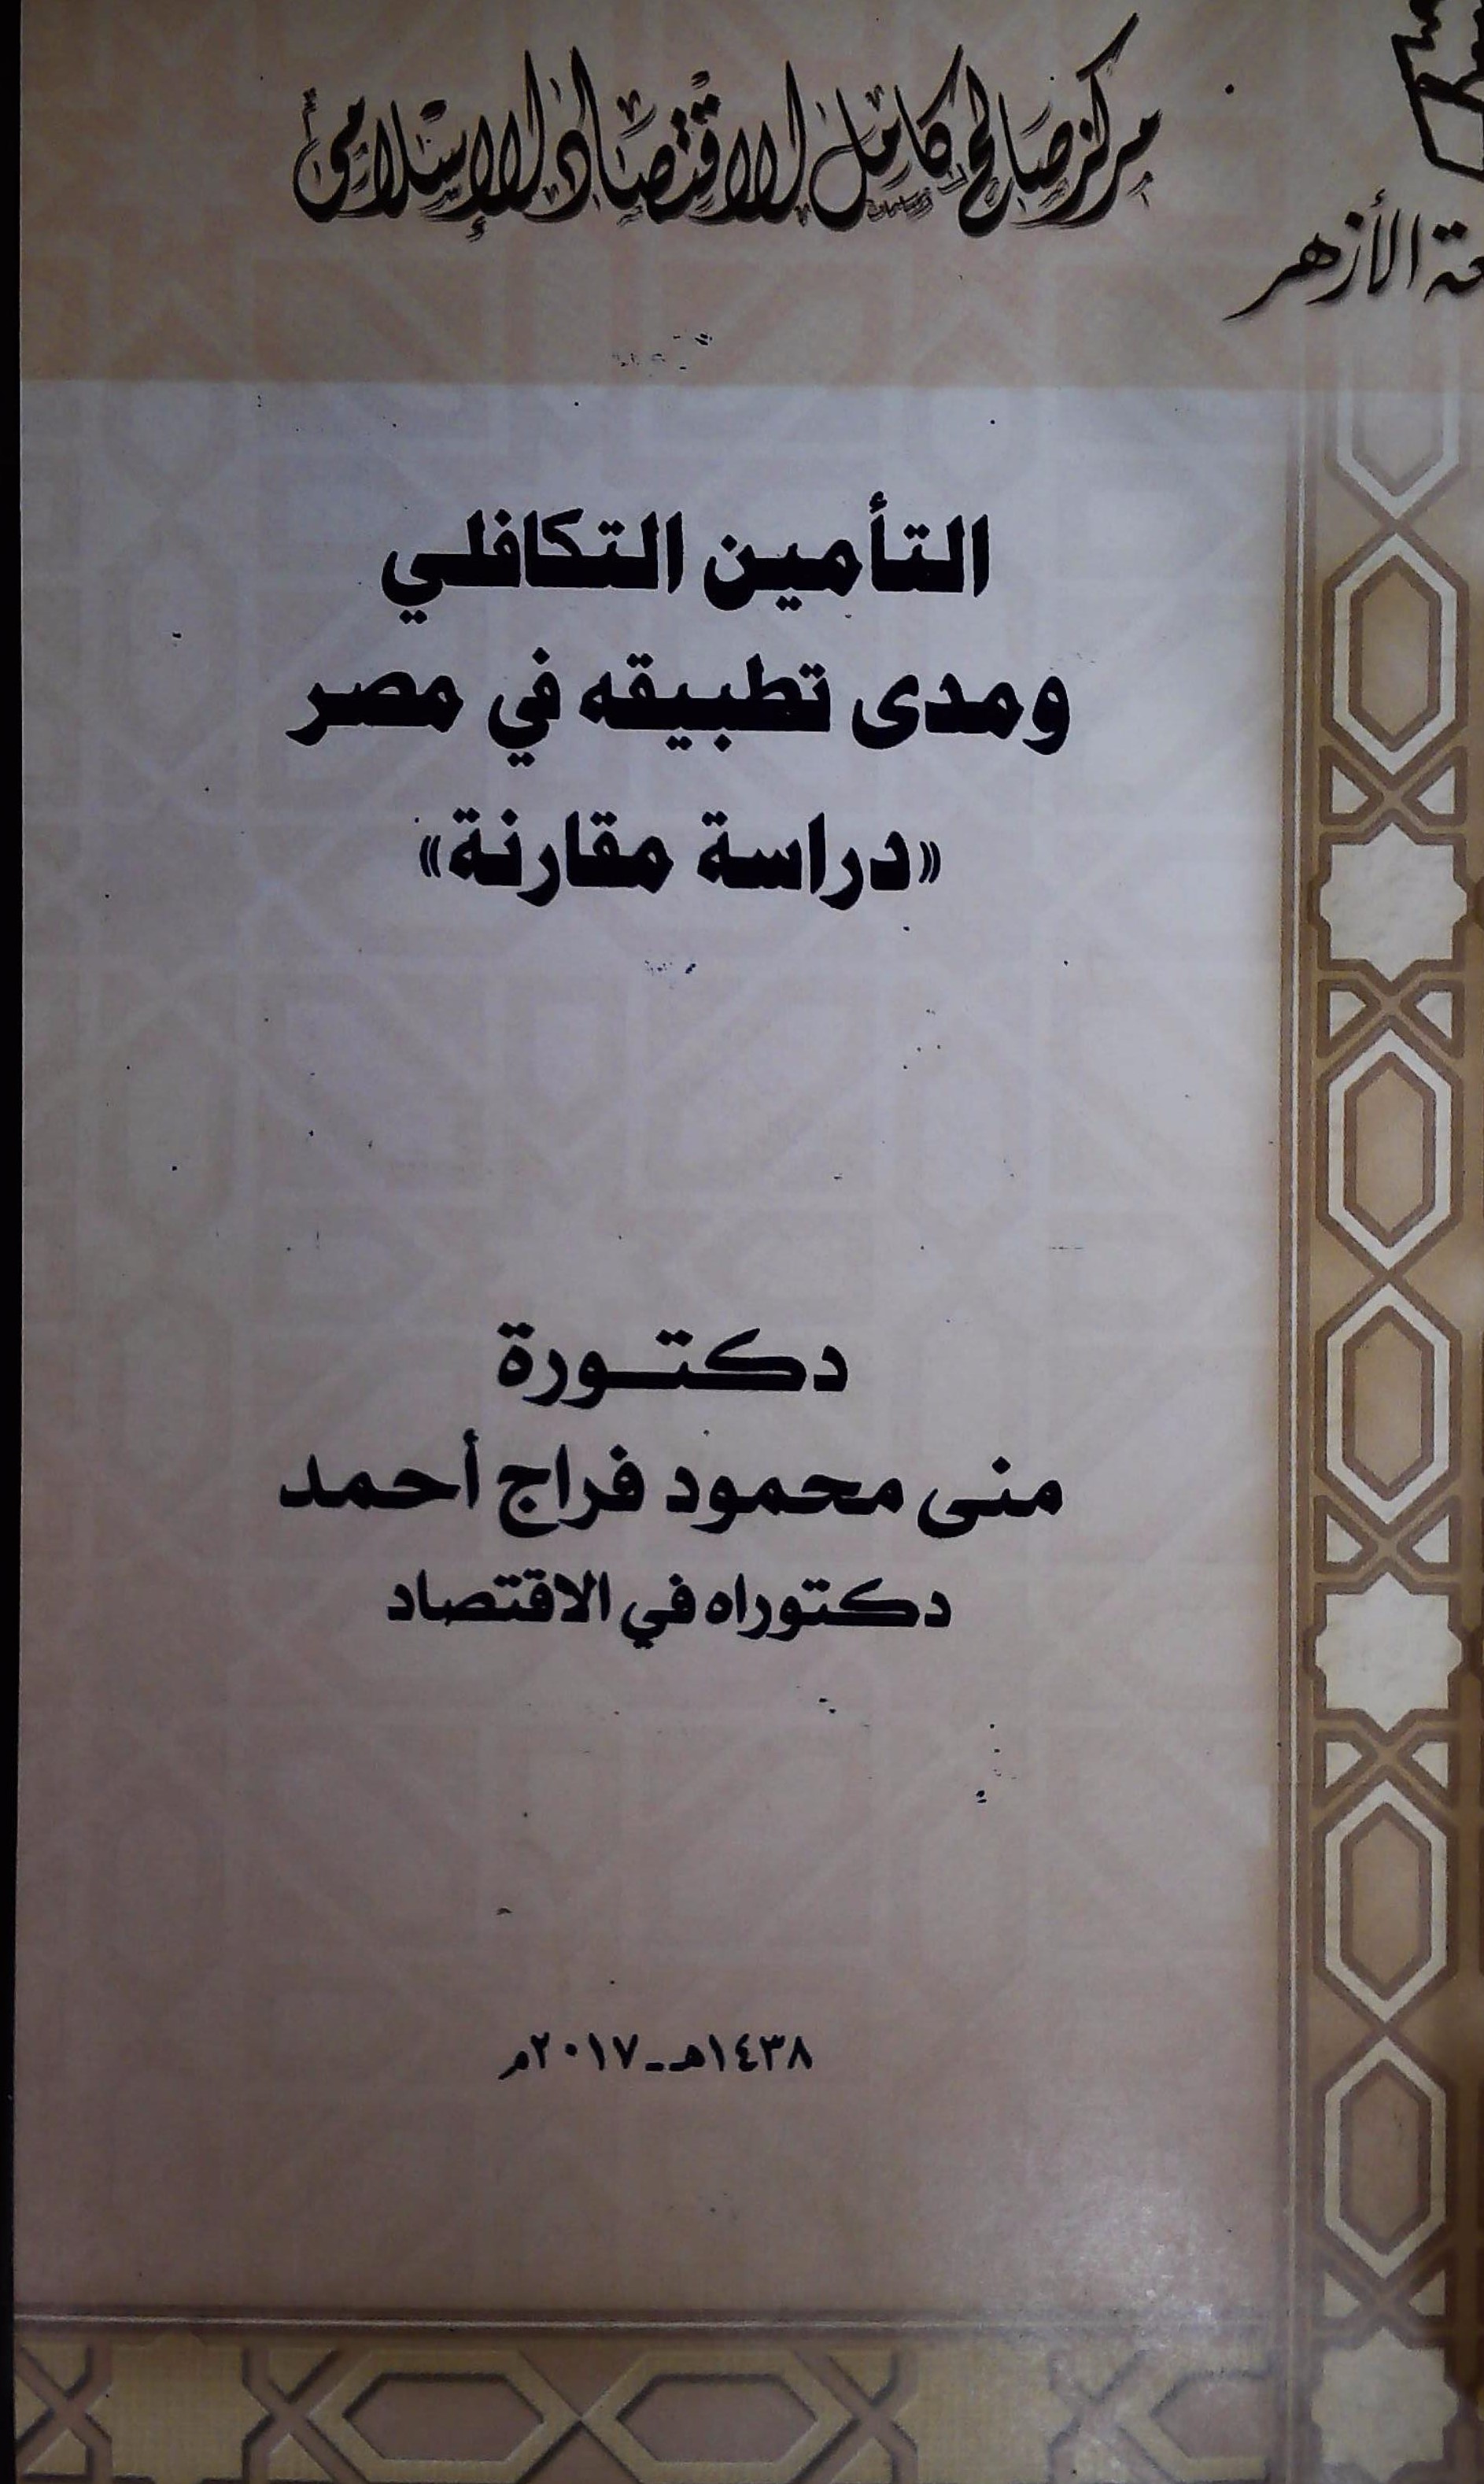 مركز صالح كامل للاقتصاد الإسلامي
الأزهر
التأمين التكافلي
ومدى تطبيقه في مصر
«دراسة مقارنة»
دكتـورة
منى محمود فراج أحمد
دكتوراه في الاقتصاد
١٤٣٨هـ-٢٠١٧م